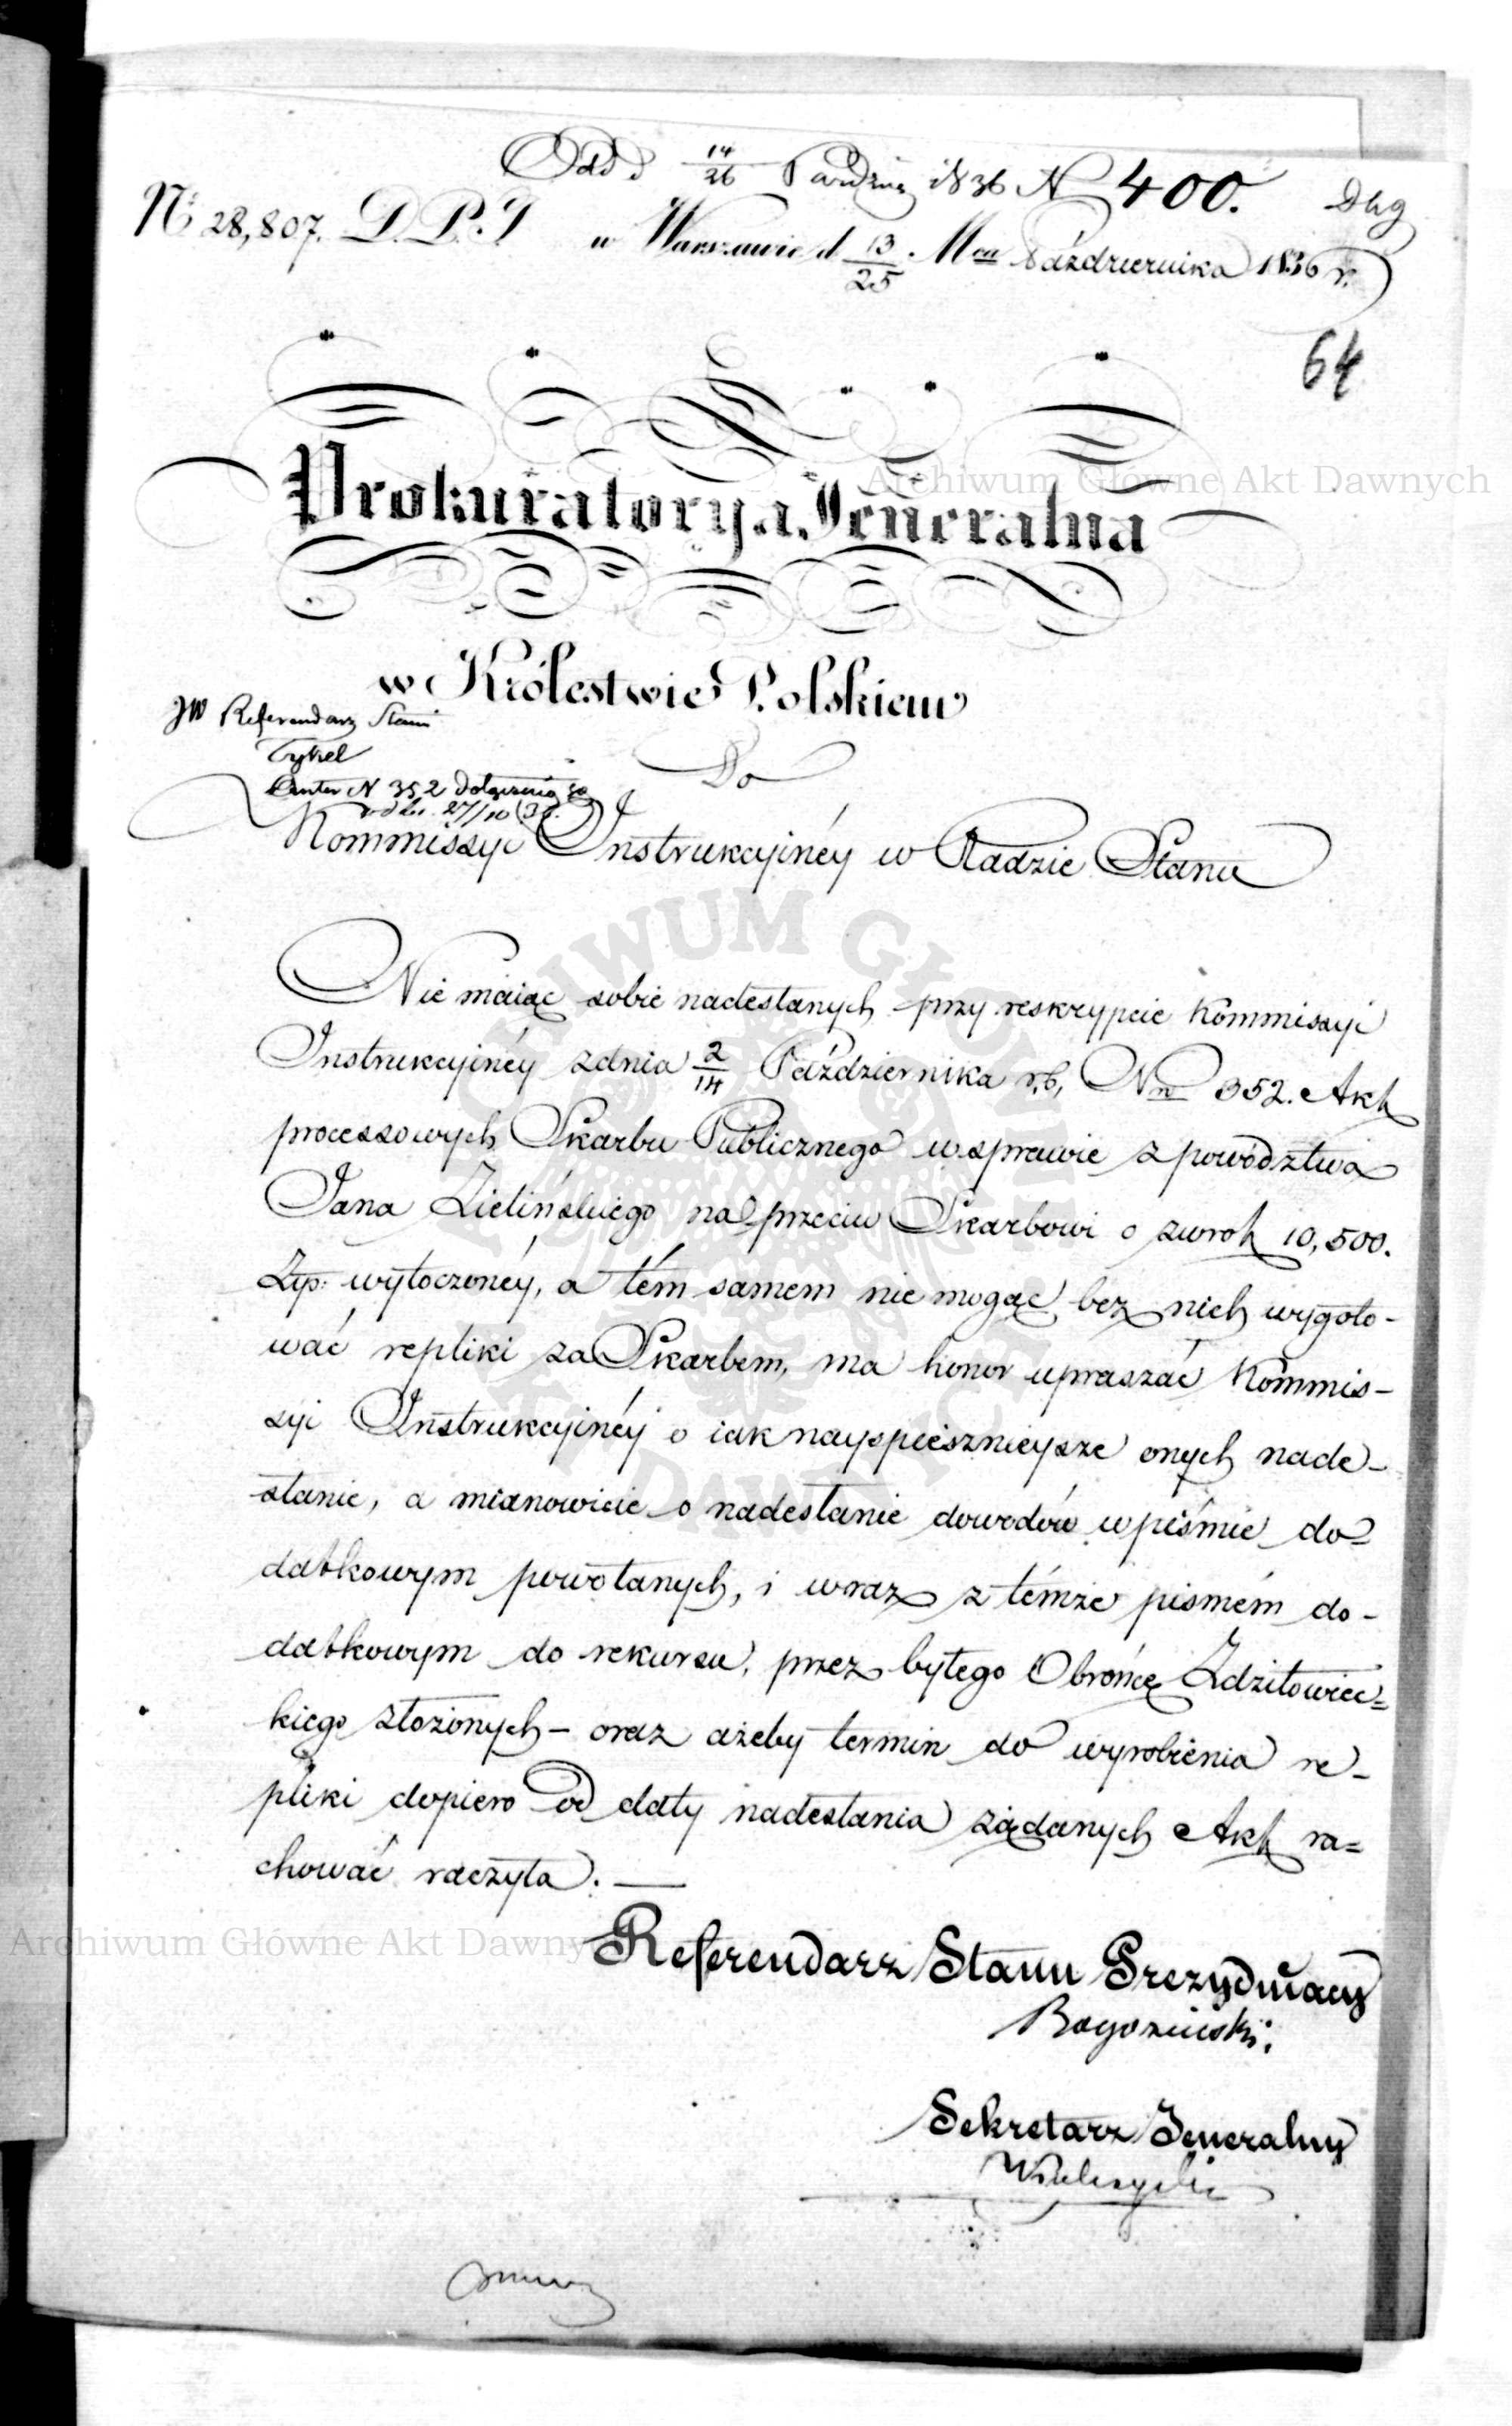 Odd d 14/26 Paździer 1836 N 400. Dług
Nr 28,807. D. P. I w Warszawie d 13/25 Mca Października 1836 r.
64
Prokuratorya Jeneralna
w Królestwie Polskiem
JW Referendarz Stanu
Tykel
Numer N 352 dołączenia
27/10 36.
Do
Kommissyi Instrukcyinéy w Radzie Stanu
Nie maiąc sobie nadesłanych przy reskrypcie Kommissyi
Instrukcyinéy z dnia 2/14 Października r. b. Nro 352. Akt
processowych Skarbu Publicznego w sprawie z powództwa
Jana Zielińskiego na przeciw Skarbowi o zwrot 10,500.
Złp: wytoczonéy, a tém samem nie mogąc bez nich wygoto-
wać repliki za Skarbem, ma honor upraszać Kommis-
syi Instrukcyinéy o iak nayspiesznieysze onych nade-
słanie, a mianowicie o nadesłanie dowodów w piśmie do-
datkowym powołanych, i wraz z témże pismém do-
datkowym do rekursu, przez byłego Obrońcę Zdziłowiec-
kiego złożonych - oraz ażeby termin do wyrobienia re-
pliki dopiero od daty nadesłania żądanych Akt ra-
chować raczyła. —
Referendarz Stanu Prezyduiący
Sekretarz Jeneralny
Archiwum Główne Akt Dawnych
Archiwum Główne Akt Dawnych
ARCHIWUM GŁÓWNE AKT DAWNYCH